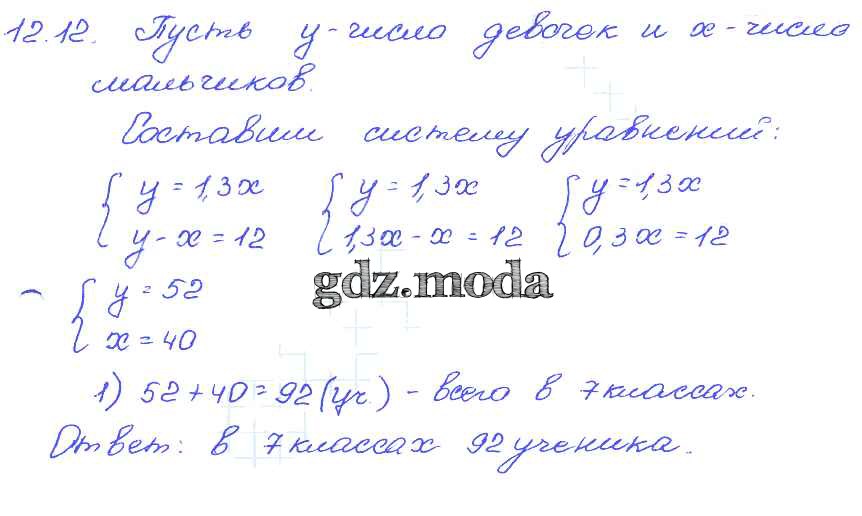 12.12. Пусть y - число девочек и x - число
мальчиков.
Составим систему уравнений:
{ y = 1,3x { y = 1,3x { y = 1,3x
{ y - x = 12 { 1,3x - x = 12 { 0,3x = 12
gdz.moda
{ y = 52
{ x = 40
1) 52 + 40 = 92 (уч.) - всего в 7 классах.
Ответ: в 7 классах 92 ученика.